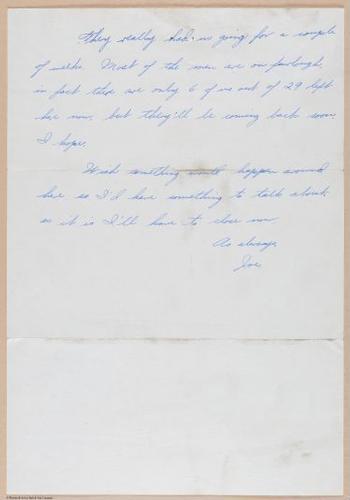 They really had us going for a couple
of weeks. Most of the men are on furlough,
in fact there are only 6 of us out of 29 left
here now, but they'll be coming back soon
I hope.
Wish something would happen around
here so I'd have something to talk about.
as it is I'll have to close now
As always,
Joe